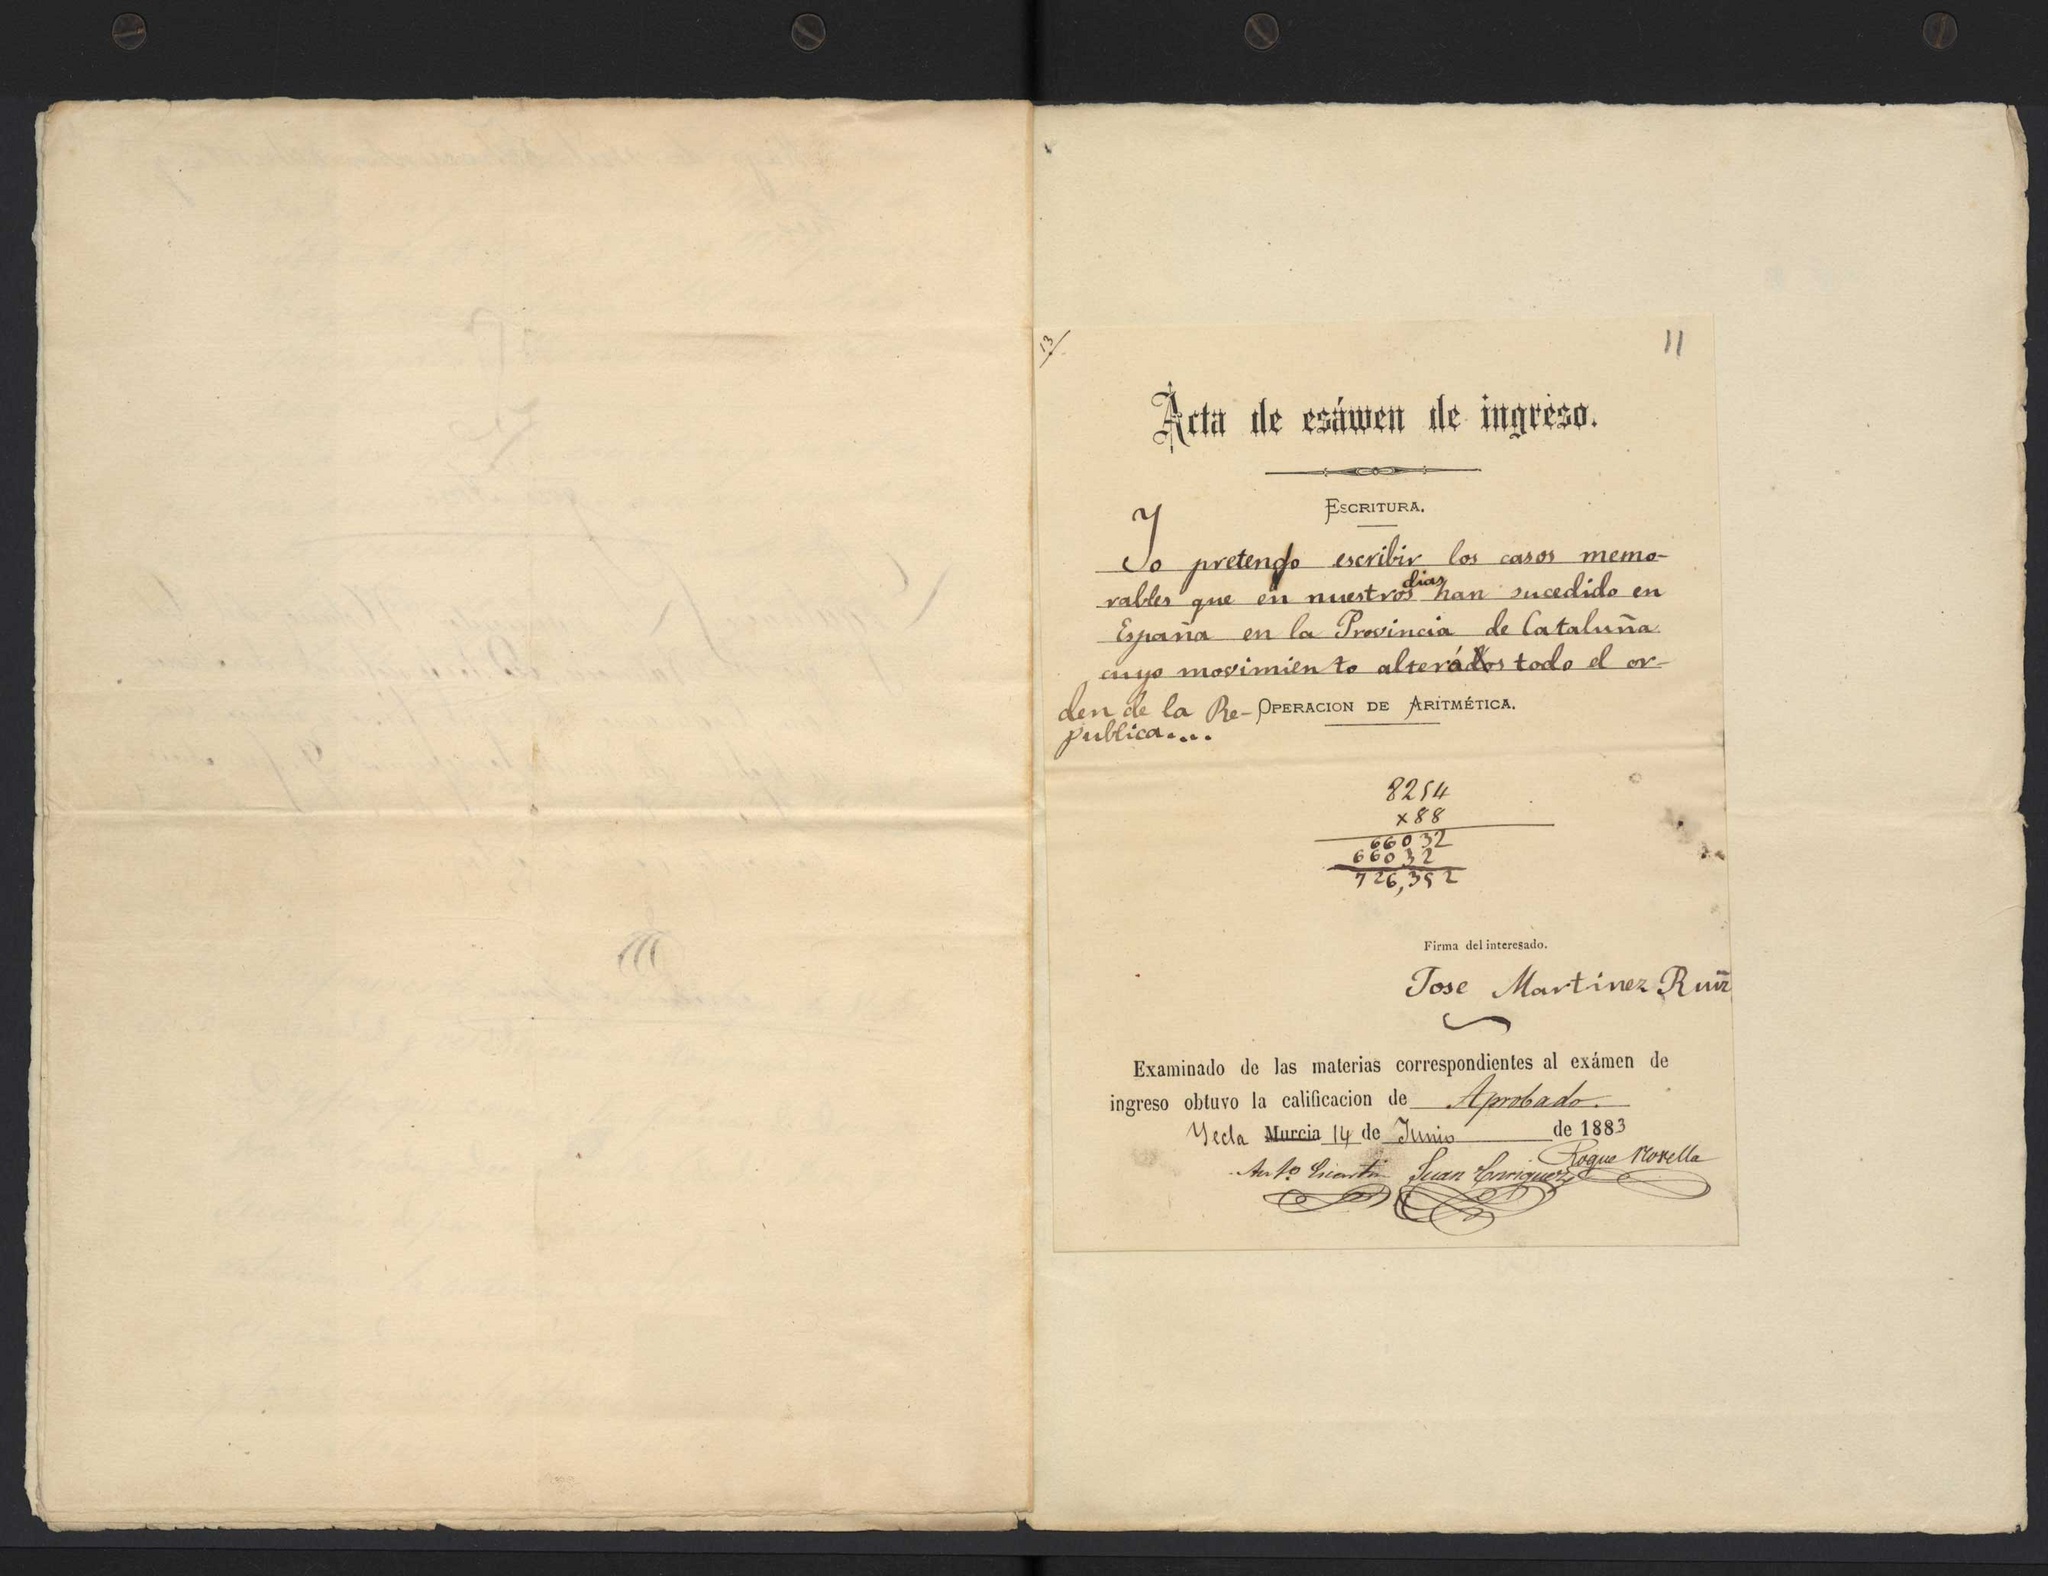 13
11
Acta de esámen de ingreso.
ESCRITURA.
Yo pretendo escribir los casos memo-
rables que en nuestros dias han sucedido en
España en la Provincia de Cataluña
cuyo movimiento alterádos todo el or-
den de la Re-
publica....
OPERACION DE ARITMÉTICA.
8254
x88
66032
66032
726,352
Firma del interesado.
Jose Martinez Ruiz
Examinado de las materias correspondientes al exámen de
ingreso obtuvo la calificacion de Aprobado.
Yecla Murcia 14 de Junio de 1883
Anto. Juan Enriquez Roque Novella